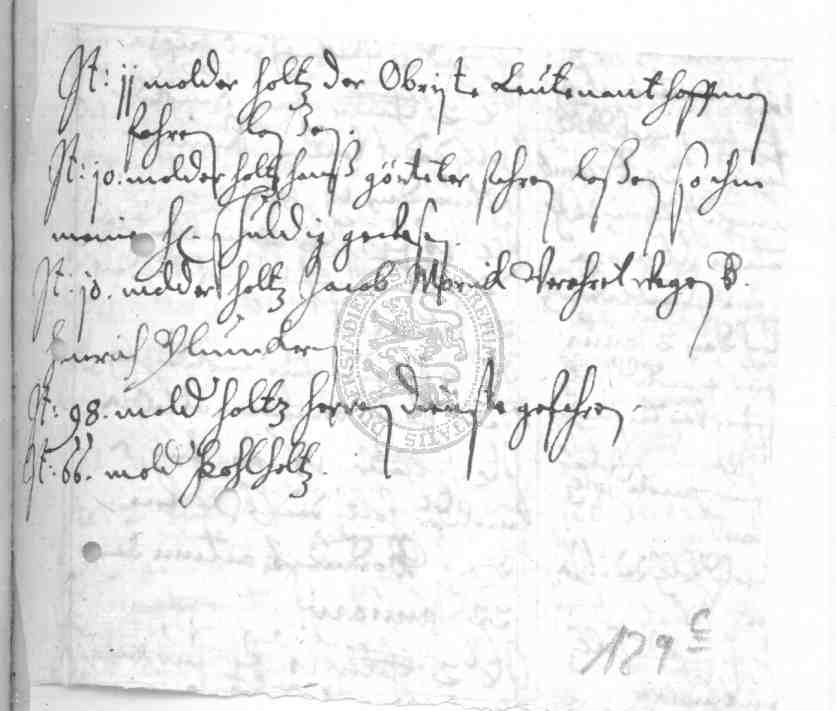 It: jj molder holtz der Obriste Leutenant hoffman
fahren laßen.
It: jo. molder holtz hanß görteler fahren laßen so ihm
meine H. schuldig gewesen.
It: jo. molder holtz Jacob verehret wegen
Hinrich
It: 98. mold holtz herren dienste gefahren.
It: 66. mold Kohlholtz.
129 c